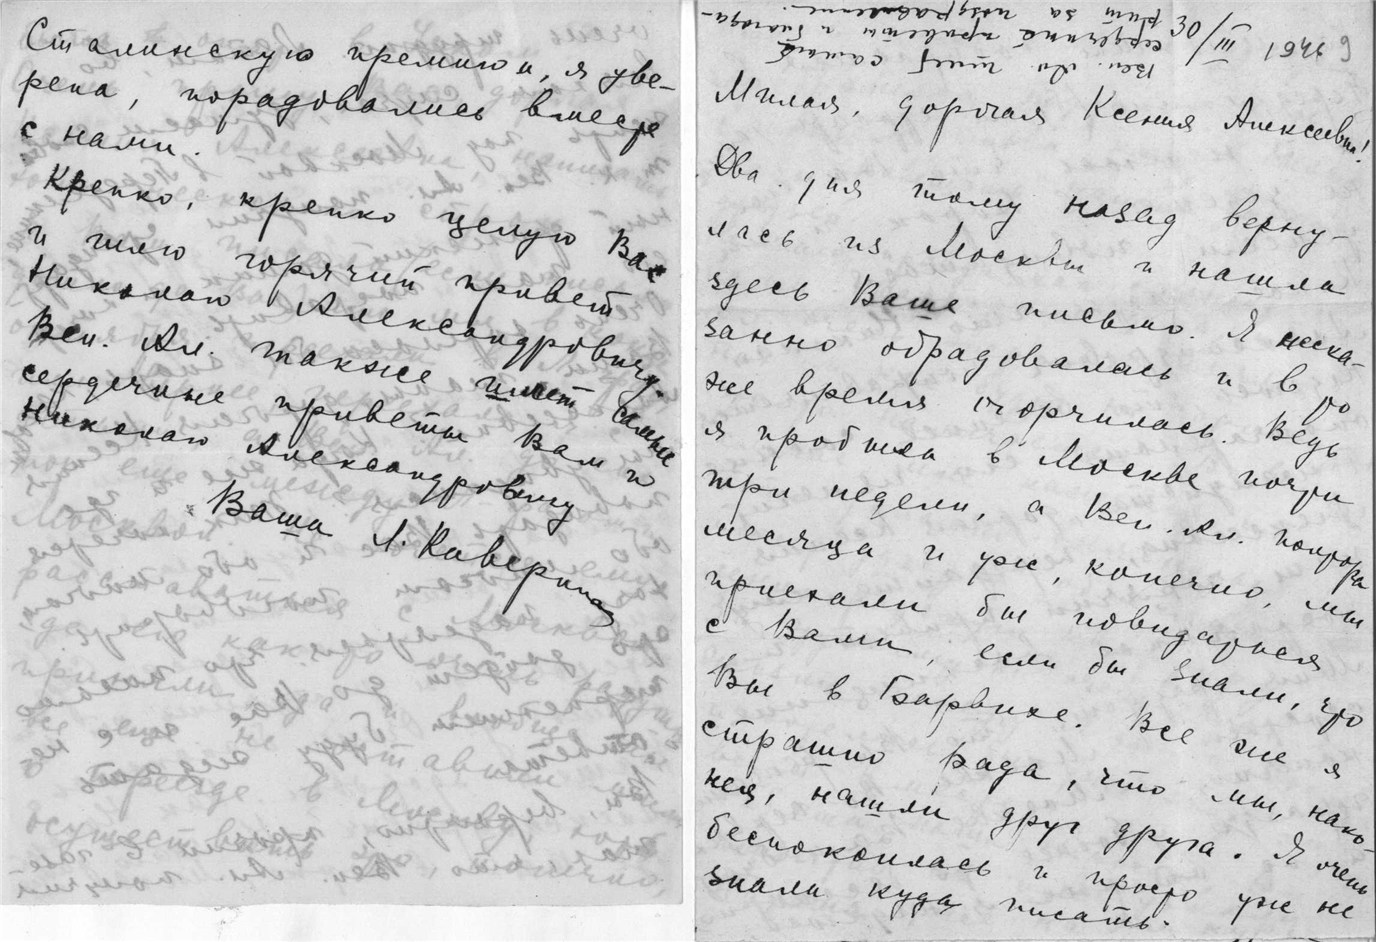 30/III 1946
Вен. Ал. шлет самый
сердечный привет и благода-
рит за поздравление.
Милая, дорогая Ксения Алексеевна!
Два дня тому назад верну-
лась из Москвы и нашла
здесь Ваше письмо. Я неска-
занно обрадовалась и в то
же время огорчилась. Ведь
я пробыла в Москве почти
три недели, а Вен. Ал. полтора
месяца и уж, конечно, мы
приехали бы повидаться
с Вами, если бы знали, что
Вы в Барвихе. Все же я
страшно рада, что мы, нако-
нец, нашли друг друга. Я очень
беспокоилась и просто уже не
знала куда писать.
Сталинскую премию и, я уве-
рена, порадовались вместе
с нами.
Крепко, крепко целую Вас
и шлю горячий привет
Николаю Александровичу.
Вен. Ал. также шлет самые
сердечные приветы Вам и
Николаю Александровичу
Ваша Л. Каверина